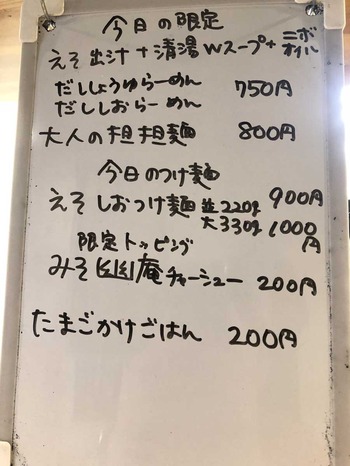 今日の限定
えそ出汁+清湯Wスープ+ニボオイル
だししょうゆらーめん 750円
だししおらーめん
大人の担担麺 800円
今日のつけ麺
えそしおつけ麺 並220g 900円
大330g 1000円
限定トッピング
みそ幽庵チャーシュー 200円
たまごかけごはん 200円